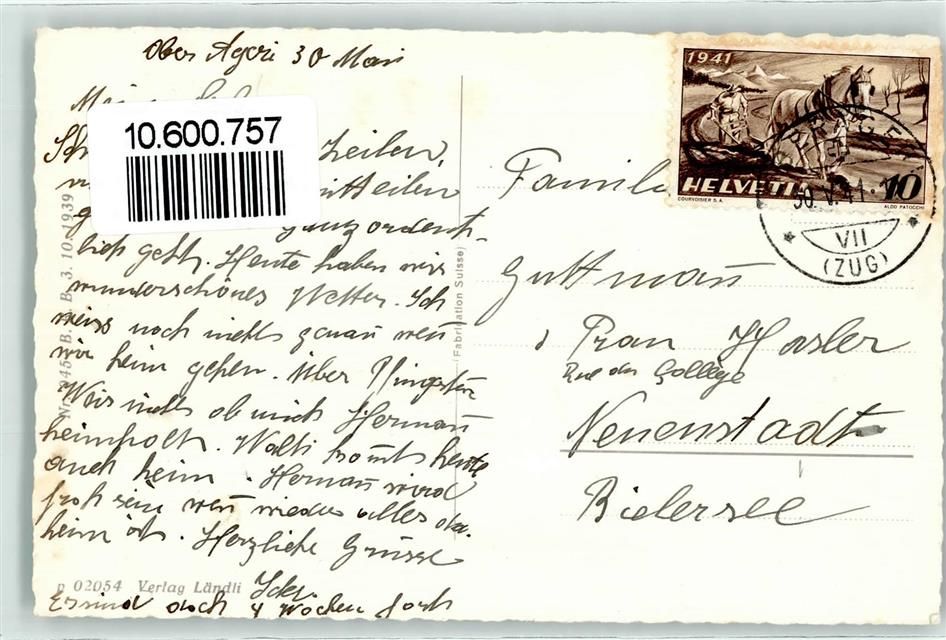 Ober Ägeri 30 Mai
10.600.757
Zeilen,
mitteilen
ganz ordent-
lich geht. Heute haben wir
wunderschönes Wetter. Ich
weiss noch nichts genau wen
wir heim gehen. Über Pfingsten
Weis nicht ob mich Herman
heimholt. Walti komt heute
auch heim. Herman wird
froh sein wen wieder alles da-
heim ist. Herzliche Grüsse
Es sind doch 4 Wochen fort
p 02054 Verlag Ländli
B. 3. 10. 1939
(Fabrication Suisse)
1941
HELVETIA
10
COURVOISIER S.A.
ALDO PATOCCHI
30.V.41
VII
(ZUG)
Familie
Guttman
Frau Hasler
Rue du College
Neuenstadt
Bielersee